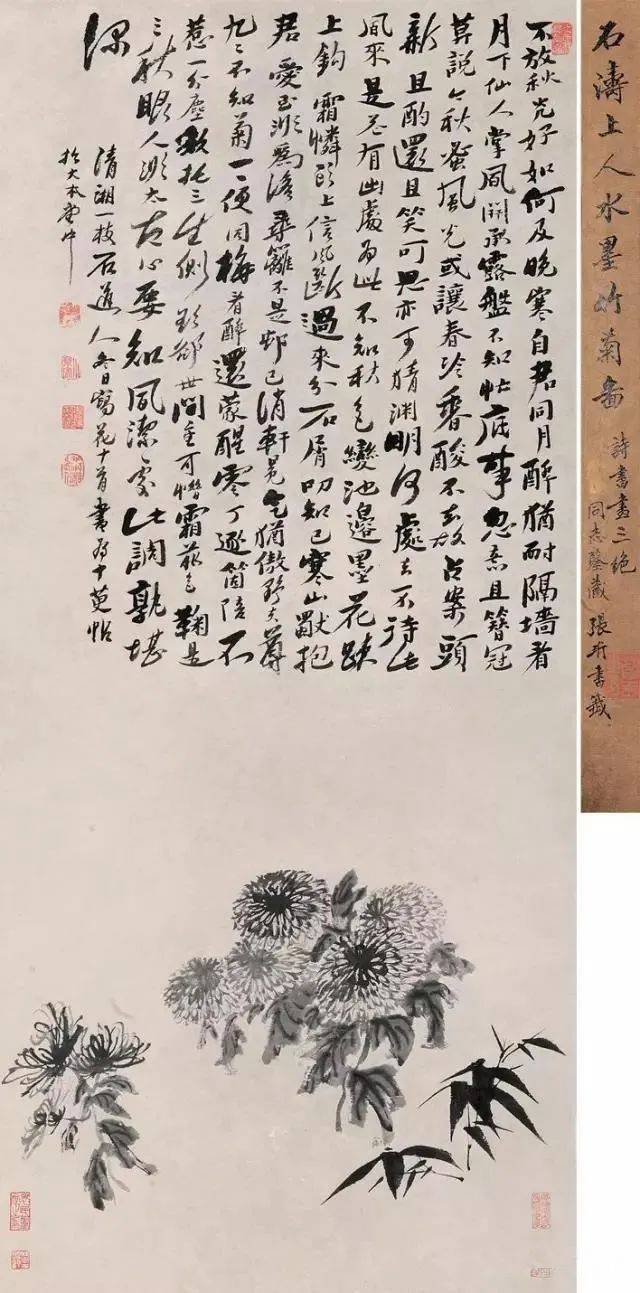 不放秋光好如何及晚寒自君同月醉猶耐隔墻看
月下仙人掌風開承露盤不知忙底事忽意且簪冠
莫說今秋風光或讓春冷香酸不去故占案頭
新且酌還且笑可思亦可猜淵明何處去不待此
風來是花有幽處為此不知秋色變池邊墨花跌
上鈎霜憐頭上信風斷過來分石屑叩知己寒山獸抱
君愛玉為澹尋籬不是邨已消軒冕氣猶傲野夫尊
九九不知菊一一便同梅看醉還蒙醒零丁邀箇陪不
惹一分塵於三生側郤世間重可惜霜色鞠是
三秋眼人太古心要知風潔處此調孰堪
深
清湘一枝石道人冬日寫花十首書為十英帖
於大本堂中
石濤上人水墨竹菊畫
詩書畫三絕
同志鑒藏 張珩書籤